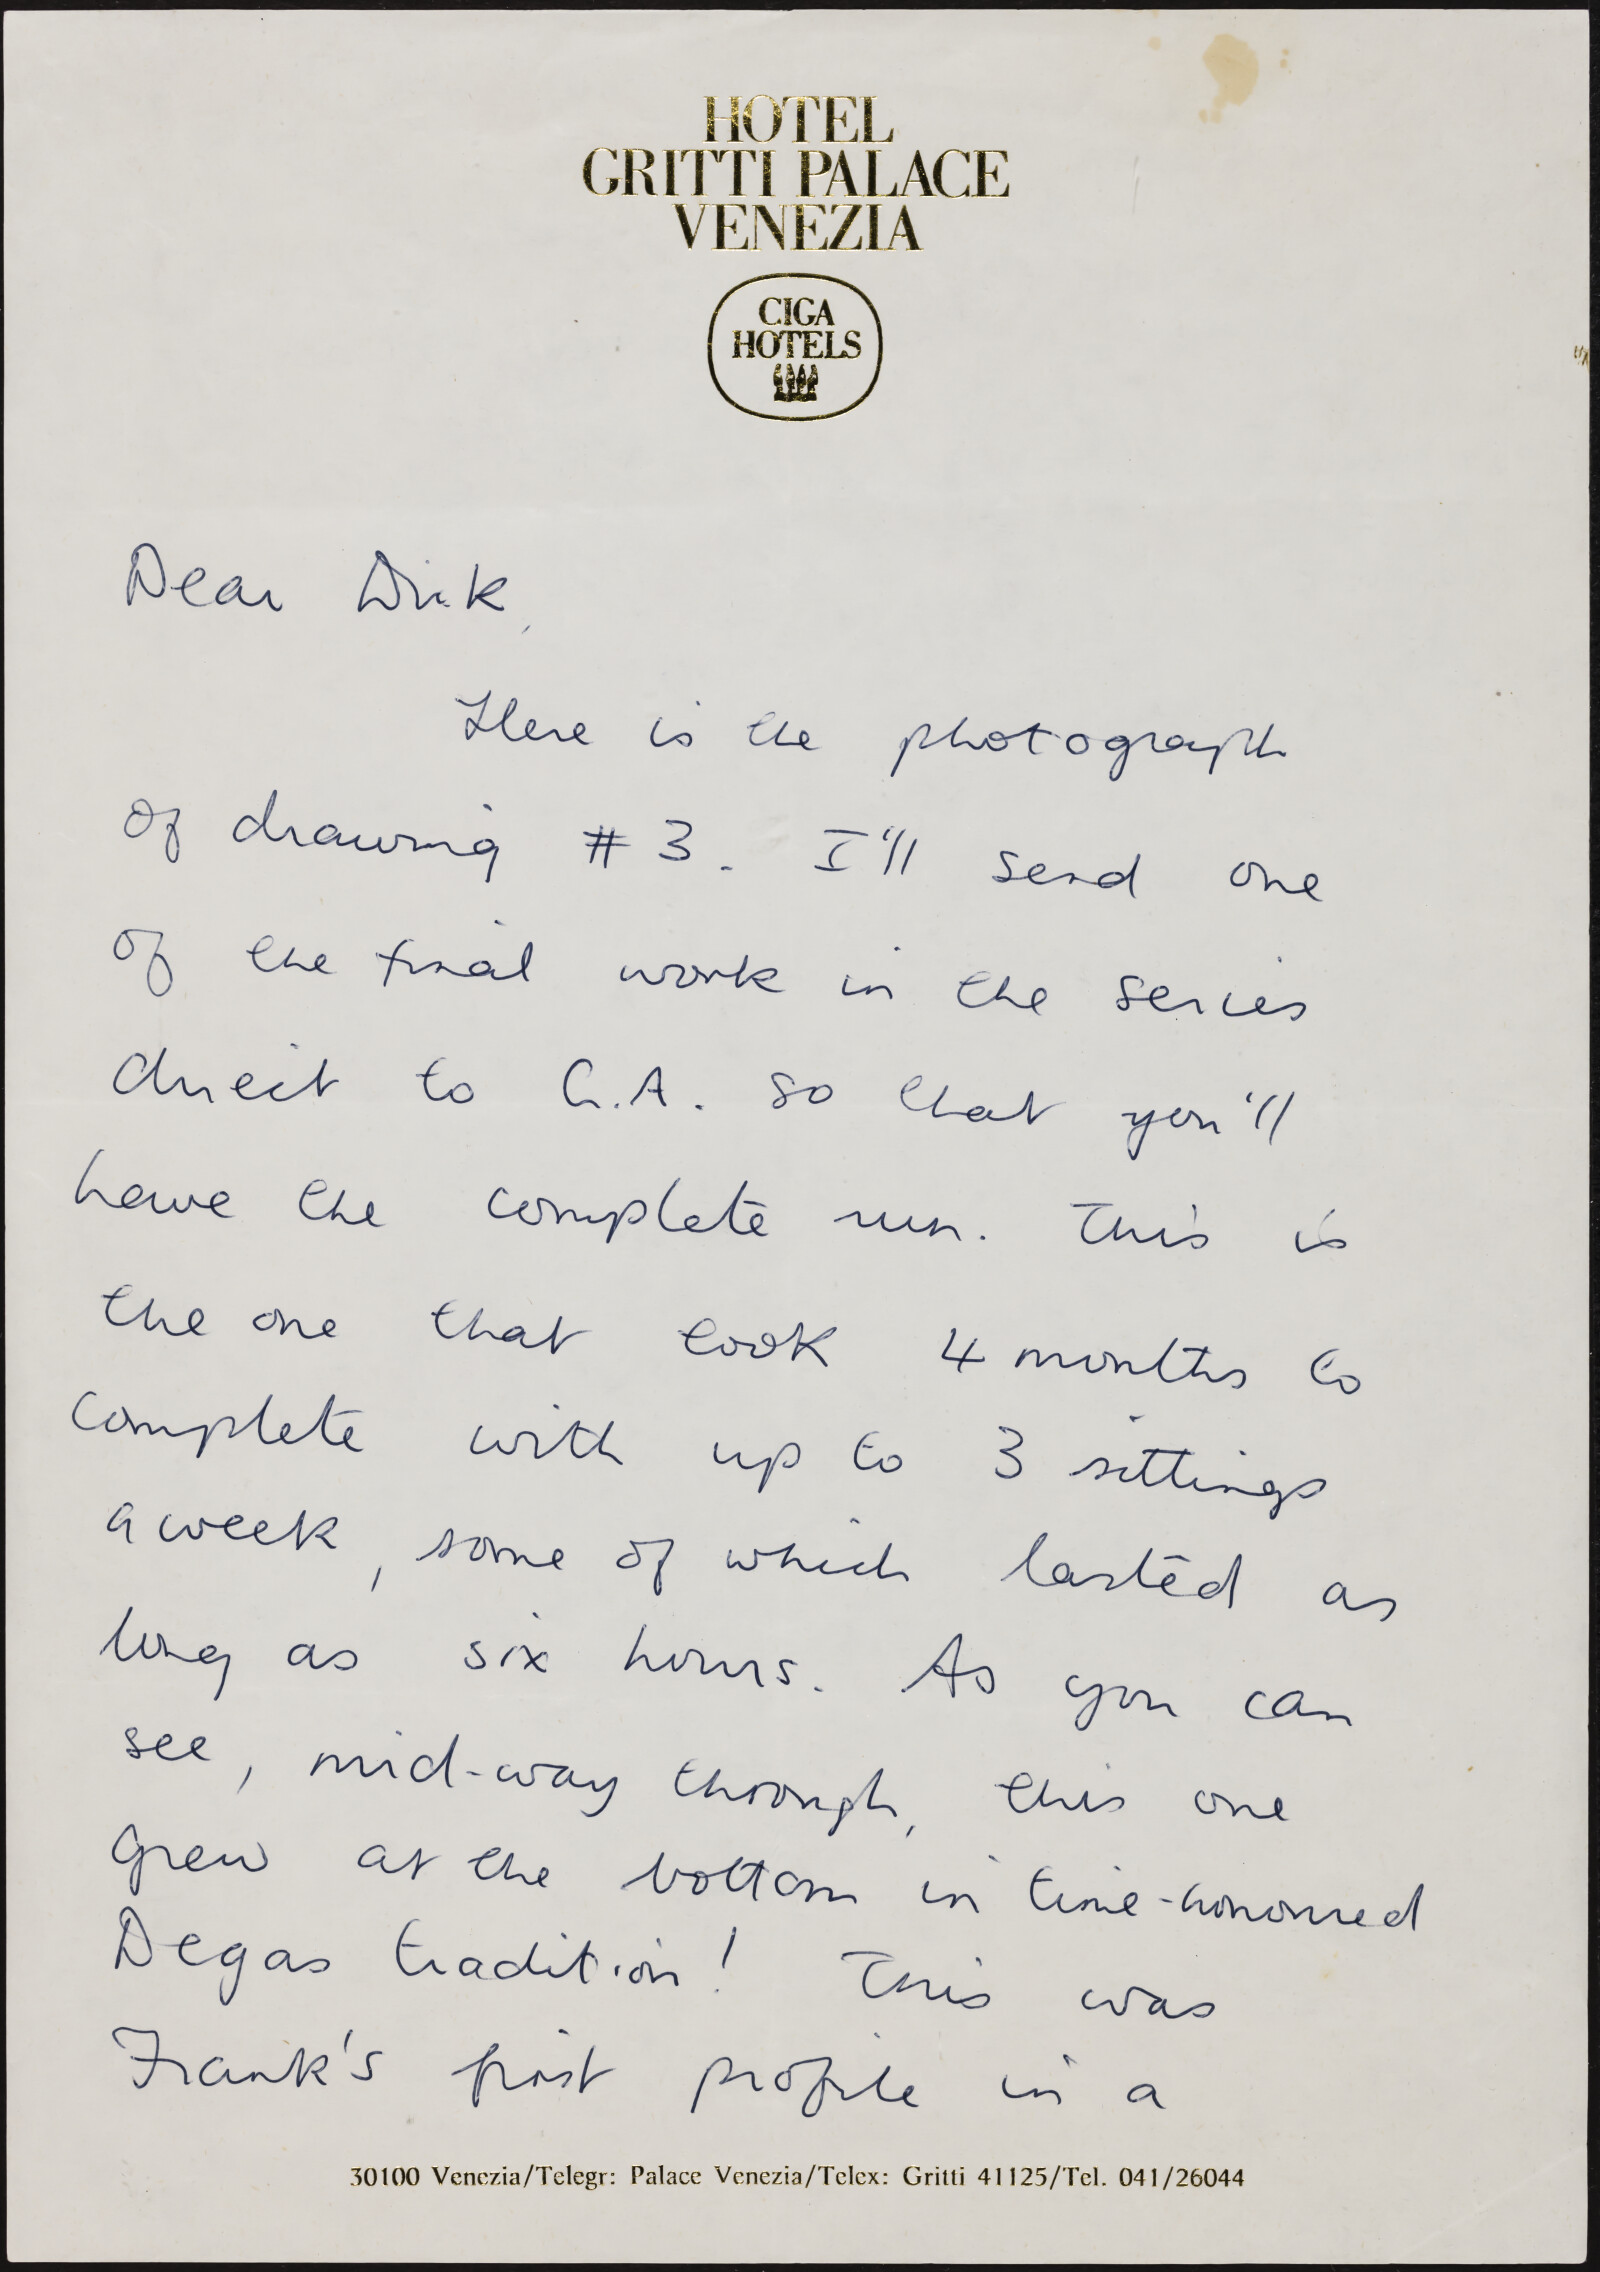 HOTEL
GRITTI PALACE
VENEZIA
CIGA
HOTELS
Dear Dick,
Here is the photograph
of drawing #3. I'll send one
of the final work in the series
direct to L.A. so that you'll
have the complete run. This is
the one that took 4 months to
complete with up to 3 sittings
a week, some of which lasted as
long as six hours. As you can
see, mid-way through, this one
grew at the bottom in time-honoured
Degas tradition! This was
Frank's first profile in a
30100 Venezia/Telegr: Palace Venezia/Telex: Gritti 41125/Tel. 041/26044